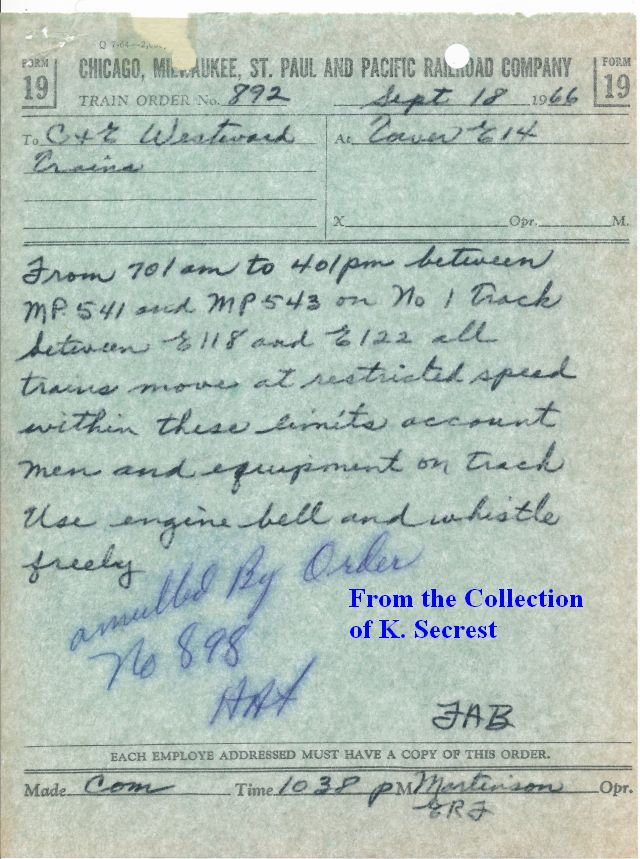 FORM 19
CHICAGO, MILWAUKEE, ST. PAUL AND PACIFIC RAILROAD COMPANY
FORM 19
TRAIN ORDER No. 892 Sept 18 1966
To C+E Westward At Tower E14
Trains
X Opr. M.
From 701am to 401pm between
MP 541 and MP 543 on No 1 Track
between E118 and E122 all
trains move at restricted speed
within these limits account
men and equipment on track
Use engine bell and whistle
freely
annulled By Order
No 898
From the Collection
of K. Secrest
JAB
EACH EMPLOYE ADDRESSED MUST HAVE A COPY OF THIS ORDER.
Made Com Time 1038 PM Martinson Opr.